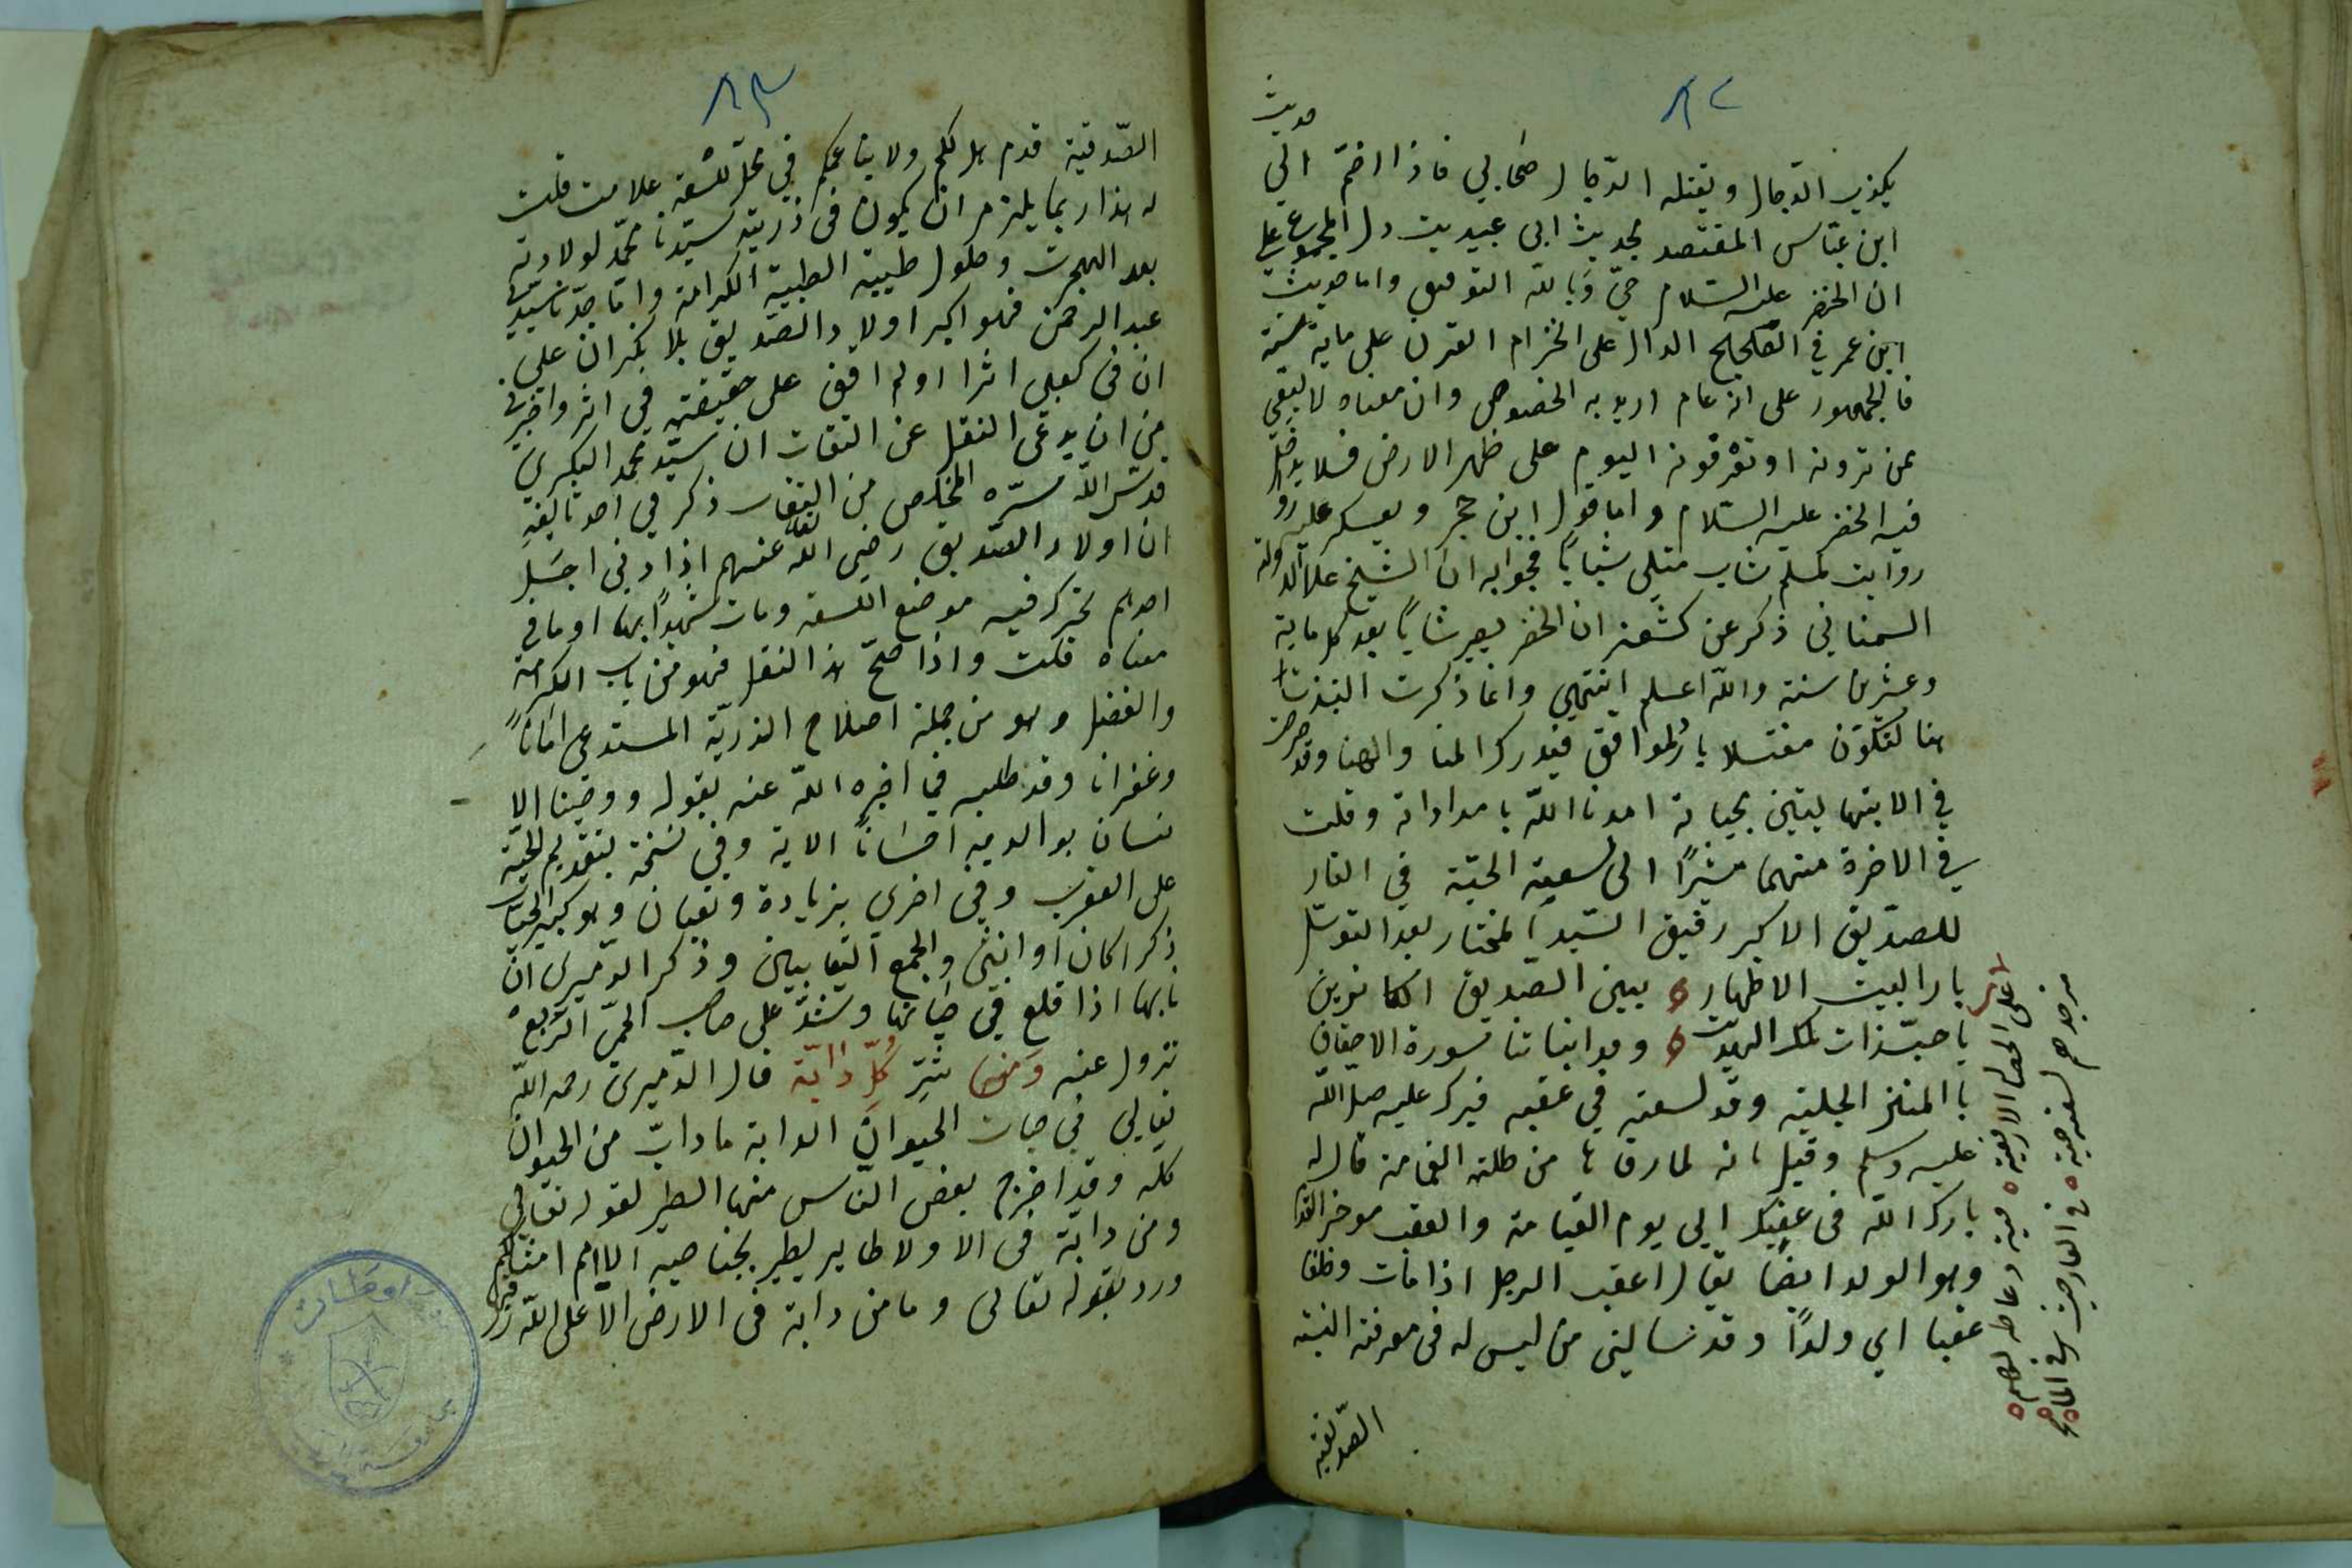 ٨٢
حديث
يكذب الدجال ويقتله الدجال صحابي فاذا اضم الي
ابن عباس المقتصد لحديث ابي عبيدت دل المجموع على
ان الخضر عليه السلام حيّ وبالله التوفيق واما حديث
ابن عمر في الصحيح الدال على انخرام القرن على ماية سنة
فالجمهور على انه عام اريد به الخصوص وان معناه لا يبقي
ممن ترونه او تعرفونه اليوم على ظهر الارض فلا يدخل
فيه الخضر عليه السلام واما قول ابن حجر ويعسكر عليه
روايت لمسلم شاب متلي شباباً فجوابه ان الشيخ علا الدولة
السمناني ذكر عن كشفه ان الخضر يصير شاباً بعد كل ماية
وعشرين سنة والله اعلم انتهي وانما ذكرت النبذتا
هنا لتكون مفتسلا بارد الموافق فيدرك المنا والهنا وقد
في الابتهاليتين بحياته امدنا الله بامداداته وقلت
في الاخرة منهما مشيرًا الى لسعية الحيّة في الغار
للصديق الاكبر رفيق السّيد المختار بعد التوسّل
بارالبيت الاطهار ٥ يبين الصّديق
يا حبّذات تلك البيوت ٥ وبدا نباتنا سورة الاحقاف
با المنز الجليه وقد لسعته في عقبه فبرك عليه صل الله
عليه وسلم وقيل انه لما رقاها من طلته القمامة قال له
بارك الله فى عقبك الى يوم القيامة والعقب موخر القدم
وهو الولد ايضا يقال اعقب الرجل اذا مات وخلفا
عقبا اي ولدًا وقد نسا لني من ليس له فى معرفته النسبة
الصديقيه
٨٣
الصّديقية قدم هل لكم ولا يناعيكم في محل لسعته علامت قلت
له هذا ربما يلزم ان يكون فى ذريته سيّدنا محمّد لولادته
بعد الهجرت وحلول طيبة الطيبة الكرامة واما جدّنا سيّدنا
عبد الرحمن فهو اكبر اولاد الصّديق بلا نكران على
ان فى كعبى اثرا اولم اقف على حقيقته فى اثر واخبرني
من ان يدعى النقل عن الثقات ان سيد محمد البكري
قدس الله سرّه المخلص من النفاس ذكر في احد تاليفه
ان اولاد الصّديق رضي الله عنهم اذا دنى اجَل
احدهم تحرك فيه موضع اللسعة ومات شهيداً بها او ما في
معناه قلت واذا صحّ هذا النقل فهو من باب الكرامة
والفضل وهو من جملة اصلاح الذريّة المستدعى امانًا
وغفرانا وقد طلبه فيما اخبره الله عنه بقوله ووصّينا الا
نسان بوالديه احسَانًا الاية وفى نسخة بتقديم الحيّة
على العقرب وفى اخري بزيادة وثعبان وهو كبير الحيّات
ذكرا كان او انثى والجمع الثعابيين وذكر الدّميري انّ
نابها اذا قلع في حياتها وشدّ على صاحب الحمّي الرّبع
تزول عنه وَمنها شَرّ كُلّ دابّة قال الدّميري رحمه الله
تعالي في حيات الحيوان الدابة ما دابّ من الحيوان
كله وقد اخرج بعض الناس منها الطير لقوله تعالي
وما من دابّة فى الا ولا طاير يطير بجناحيه الا امم امثالكم
ورد بقوله تعالى وما من دابة فى الارض الا على الله رزقها